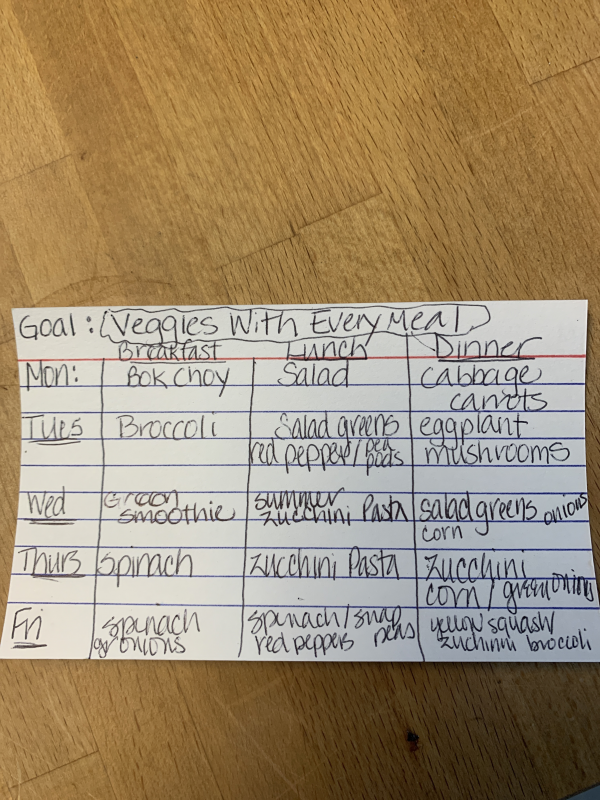 Goal: Veggies With Every Meal
Breakfast Lunch Dinner
Mon: Bok choy Salad cabbage
carrots
Tues Broccoli Salad greens eggplant
red pepper/pea pods mushrooms
Wed Green summer salad greens onions
smoothie zucchini Pasta corn
Thurs Spinach Zucchini Pasta Zucchini
corn/green onions
Fri spinach spinach/snap yellow squash
gr onions red peppers peas zuchinni broccoli